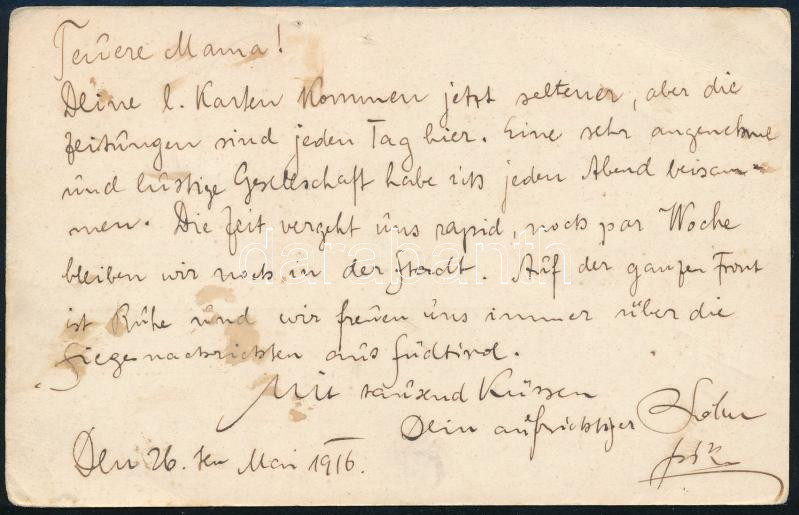 Teuere Mama!
Deine l. Karten kommen jetzt seltener, aber die
Zeitungen sind jeden Tag hier. Eine sehr angenehme
und lustige Gesellschaft habe ich jeden Abend beisam=
men. Die Zeit vergeht uns rapid, noch par Woche
bleiben wir noch in der Stadt. Auf der ganzen Front
ist Ruhe und wir freuen uns immer über die
Siegesnachrichten aus Südtirol.
Mit tausend Küssen
Dein aufrichtiger Sohn
Den 26. ten Mai 1916.
darabanth